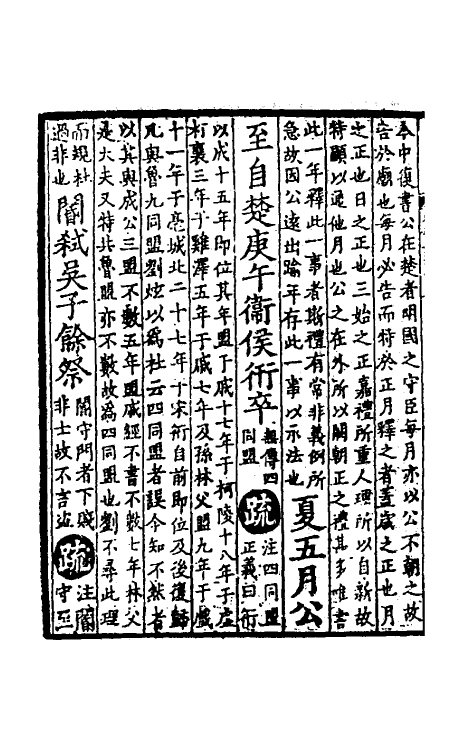 本中復書公在楚者明國之守臣每月亦以公不朝之故
告於廟也每月必告而特於正月釋之者蓋歲之正也月
之正也日之正也三始之正嘉禮所重人理所以自新故
特顯以通他月也公之在外所以闕朝正之禮甚多唯書
此一年釋此一事者斯禮有常非義例所
急故因公遠出踰年存此一事以示法也
夏五月公
至自楚庚午衞侯衎卒
無傳四
同盟
疏
注四同盟
正義曰衎
以成十五年即位其年盟于戚十七年于柯陵十八年于虛
朾襄三年于雞澤五年于戚七年及孫林父盟九年于戲
十一年于亳城北二十七年于宋衎自前即位及後復歸
凡與魯九同盟劉炫以為杜云四同盟者誤今知不然者
以其與成公三盟不數五年盟戚經不書不數七年林父
是大夫又特共魯盟亦不數故為四同盟也劉不尋此理
而規杜
過非也
閽弒吳子餘祭
閽守門者下賤
非士故不言盜
疏
注閽
守至